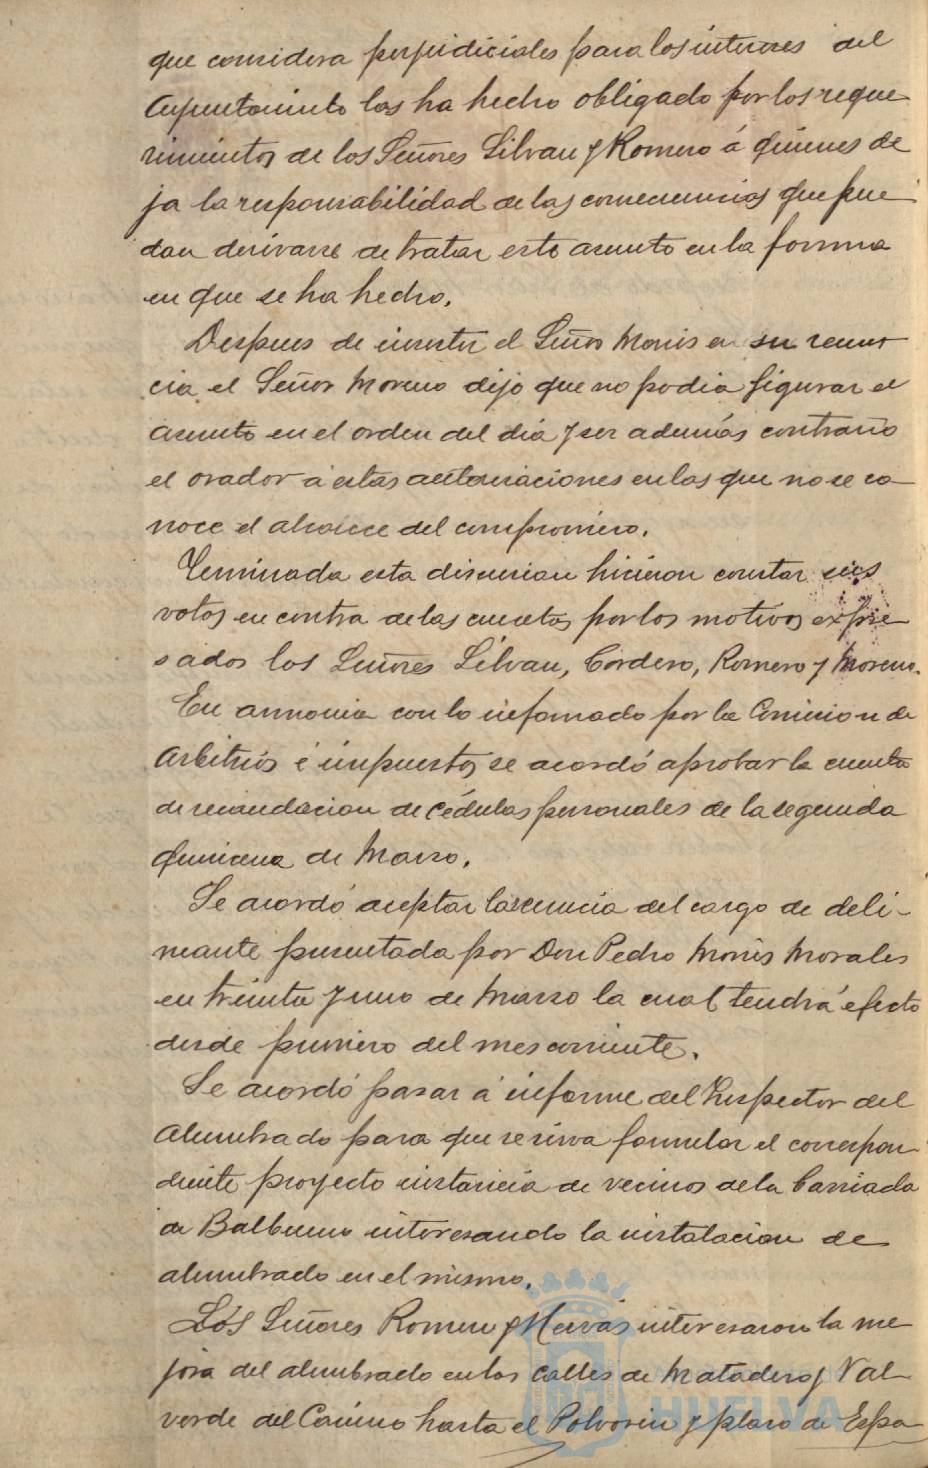 que considera perjudiciales para los intereses del
Ayuntamiento las ha hecho obligado por los reque
rimientos de los Señores Silvan y Romero á quienes de
ja la responsabilidad de las consecuencias que pue
dan derivarse de tratar este asunto en la forma
en que se ha hecho.
Despues de insistir el Señor Monís en su renun
cia el Señor Moreno dijo que no podia figurar el
asunto en el orden del dia y ser además contrario
el orador á estas autorizaciones en las que no se co
noce el alcance del compromiso.
Terminada esta discusion hicieron constar sus
votos en contra de las cuentas por los motivos expre
sados los Señores Silvan, Cordero, Romero y Moreno.
En armonia con lo informado por la Comision de
Arbitrios é impuestos se acordó aprobar la cuenta
de recaudacion de cédulas personales de la segunda
quincena de Marzo.
Se acordó aceptar la renuncia del cargo de deli-
neante presentada por Don Pedro Monís Morales
en treinta y uno de Marzo la cual tendrá efecto
desde primero del mes corriente.
Se acordó pasar á informe del Inspector del
Alumbrado para que se sirva formular el correspon-
diente proyecto instancia de vecinos de la Barriada
de Balbueno interesando la instalacion de
alumbrado en el mismo.
Los Señores Romero y Hervás interesaron la me
jora del alumbrado en las calles de Matadero y Val-
verde del Camino hasta el Polvorin y plaza de Espa
HUELVA